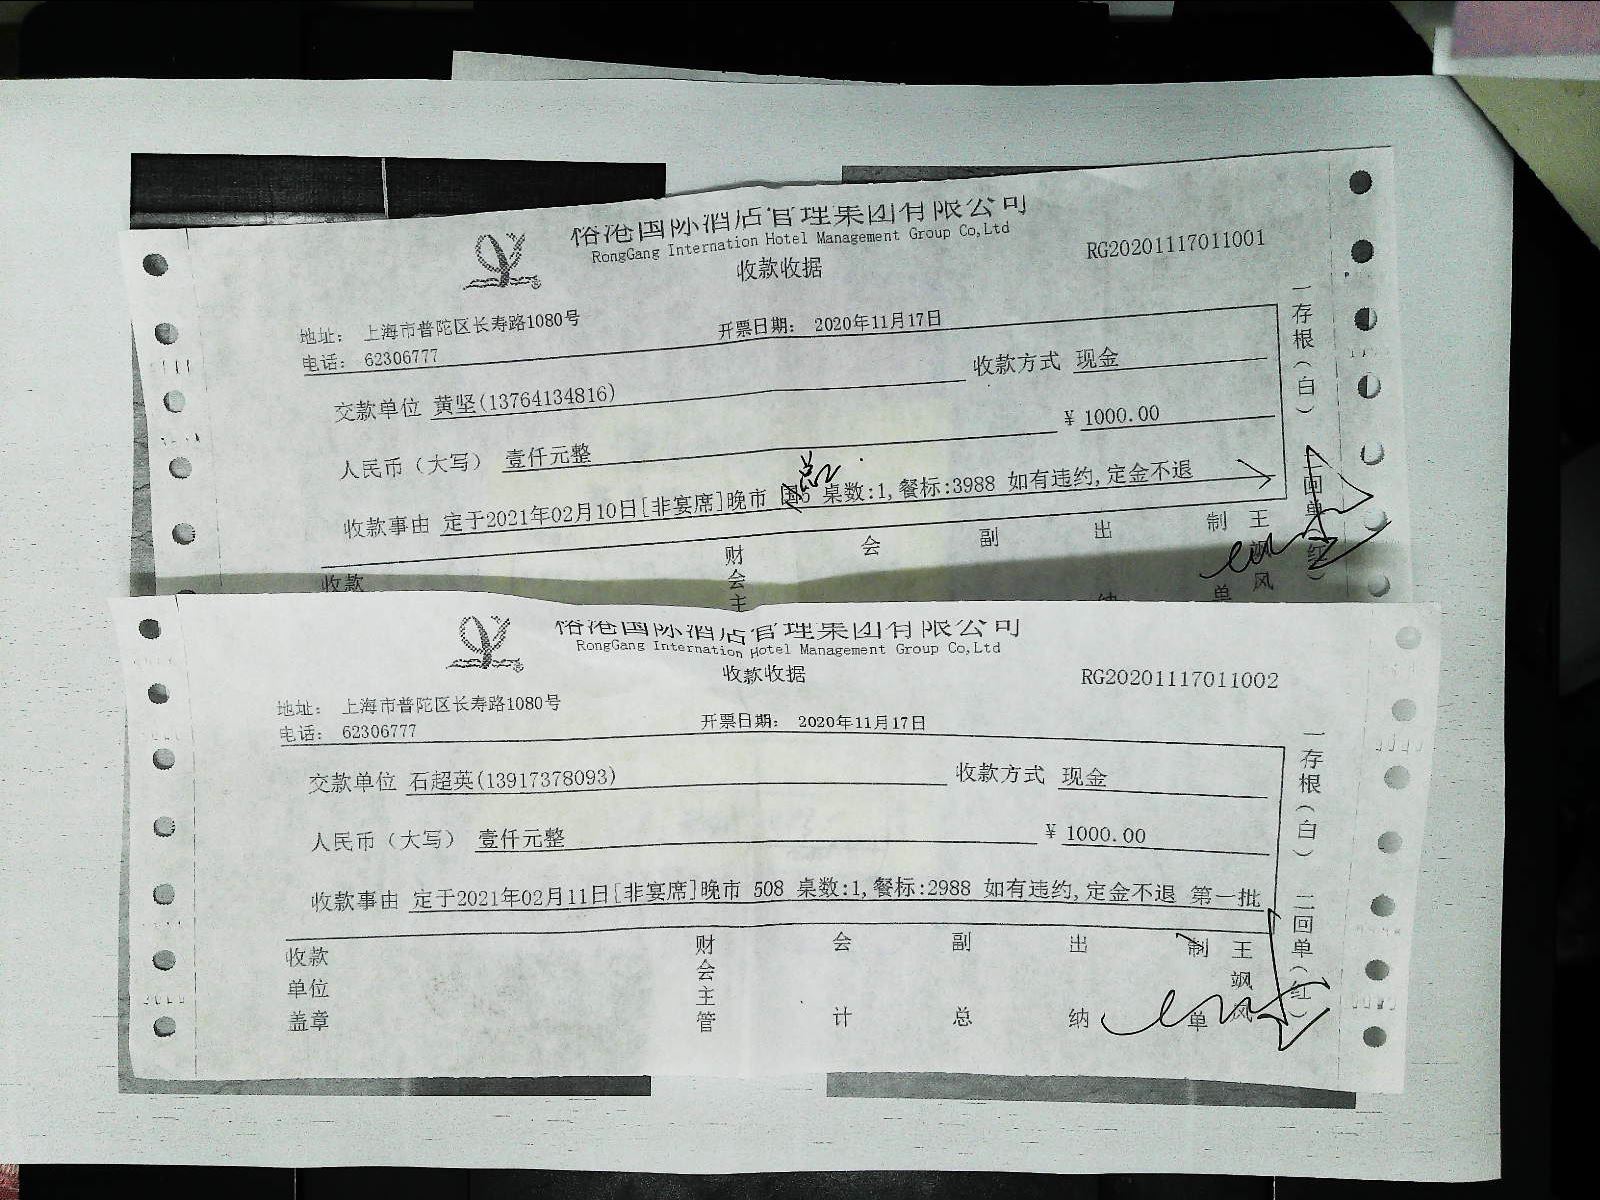 裕港国际酒店管理集团有限公司
RongGang Internation Hotel Management Group Co,Ltd
收款收据
RG20201117011001
地址： 上海市普陀区长寿路1080号
电话： 62306777
开票日期： 2020年11月17日
交款单位 黄坚(13764134816)
收款方式 现金
人民币（大写） 壹仟元整
¥ 1000.00
收款事由 定于2021年02月10日[非宴席]晚市 桌数:1,餐标:3988 如有违约,定金不退
收款
财会主
会
副
出
制单
王飒风
一存根（白）
二回单（红）
裕港国际酒店管理集团有限公司
RongGang Internation Hotel Management Group Co,Ltd
收款收据
RG20201117011002
地址： 上海市普陀区长寿路1080号
电话： 62306777
开票日期： 2020年11月17日
交款单位 石超英(13917378093)
收款方式 现金
人民币（大写） 壹仟元整
¥ 1000.00
收款事由 定于2021年02月11日[非宴席]晚市 508 桌数:1,餐标:2988 如有违约,定金不退 第一批
收款
单位
盖章
财会主管
会计
副总
出纳
制单
王飒风
一存根（白）
二回单（红）